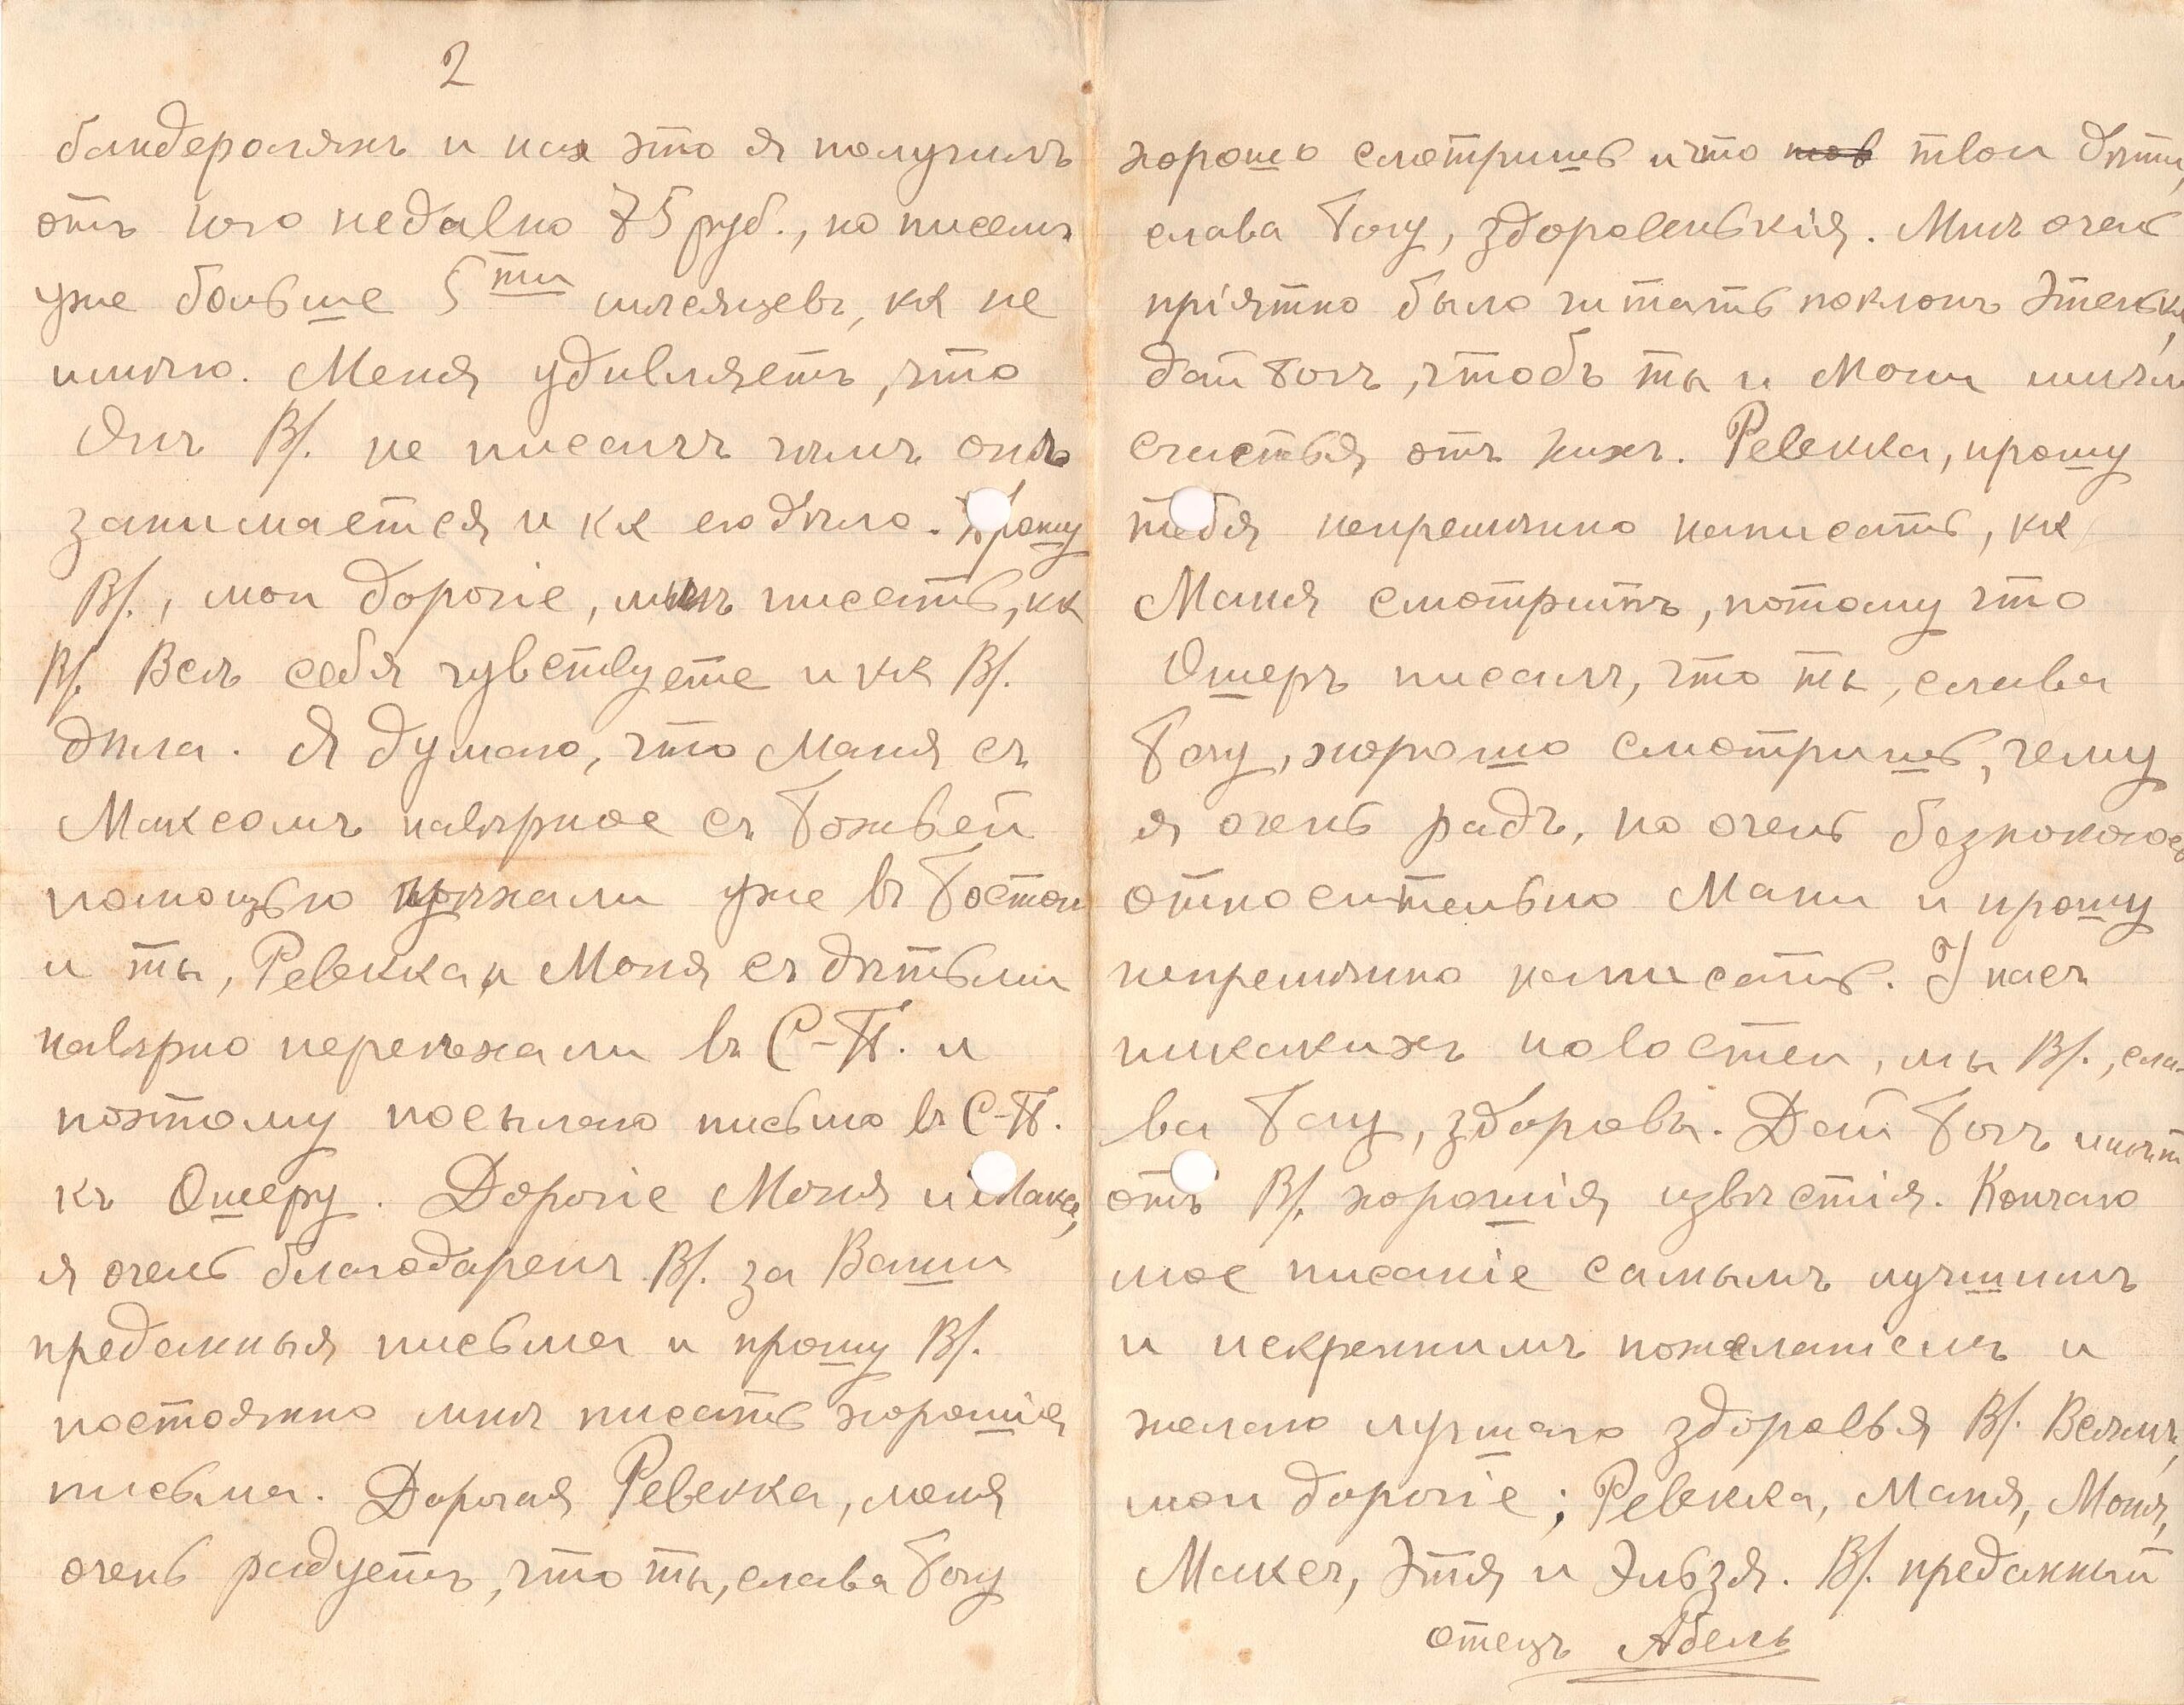 2
бандеролямъ и на это я получилъ
отъ него недавно 75 руб., но писемъ
уже больше 5ти мѣсяцевъ, кк не
имѣю. Меня удивляетъ, что
Онъ В/. не писалъ чѣмъ онъ
занимается и кк его дѣло. Прошу
В/., мои дорогіе, мнѣ писать, кк
В/. Всѣ себя чувствуете и кк В/.
дѣла. Я думаю, что Маня съ
Максомъ навѣрное съ Божьей
помощью уѣхали уже въ Бостон
и ты, Ревекка, и Моня съ дѣтьми
навѣрно переѣхали въ С-П. и
поэтому посылаю письмо въ С-П.
къ Ошеру. Дорогіе Моня и Максъ,
я очень благодаренъ В/. за Ваши
преданныя письма и прошу В/.
постоянно мнѣ писать хорошія
письма. Дорогая Ревекка, меня
очень радуетъ, что ты, слава Богу
хорошо смотришь и что твои дѣти,
слава Богу, здоровенькія. Мнѣ очень
пріятно было читать поклонъ Этеньки,
дай Богъ, чтобъ ты и Моня имѣли
счастья отъ нихъ. Ревекка, прошу
тебя непремѣнно написать, кк
Маня смотритъ, потому что
Ошеръ писалъ, что ты, слава
Богу, хорошо смотришь, чему
я очень радъ, но очень безпокоюсь
относительно Мани и прошу
непремѣнно написать. У насъ
никакихъ новостей, мы В/., сла-
ва Богу, здоровы. Дай Богъ имѣть
отъ В/. хорошія извѣстія. Кончаю
мое писаніе самымъ лучшимъ
и искреннимъ пожеланіемъ и
желаю лучшаго здоровья В/. Всѣмъ,
мои дорогіе; Ревекка, Маня, Моня,
Максъ, Этя и Эльзя. В/. преданный
отецъ Абель